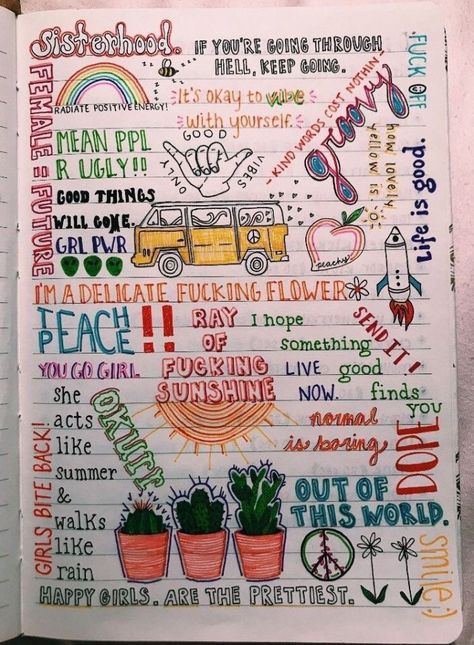 Sisterhood.
IF YOU'RE GOING THROUGH
HELL, KEEP GOING.
FUCK OFF
FEMALE = FUTURE
RADIATE POSITIVE ENERGY!
It's okay to vibe
with yourself.
- KIND WORDS COST NOTHIN'
groovy
how lovely
yellow is
Life is good.
MEAN PPL
R UGLY!!
GOOD
ONLY
VIBES
GOOD THINGS
WILL COME.
GRL PWR
peachy
I'M A DELICATE FUCKING FLOWER
TEACH
PEACE
!!
RAY
OF
FUCKING
SUNSHINE
I hope
something
good
finds
you
SEND IT!
YOU GO GIRL
LIVE
NOW.
she
acts
like
summer
&
walks
like
rain
OKURR
normal
is boring
DOPE
GIRLS BITE BACK!
OUT OF
THIS WORLD.
smile :)
HAPPY GIRLS. ARE THE PRETTIEST.